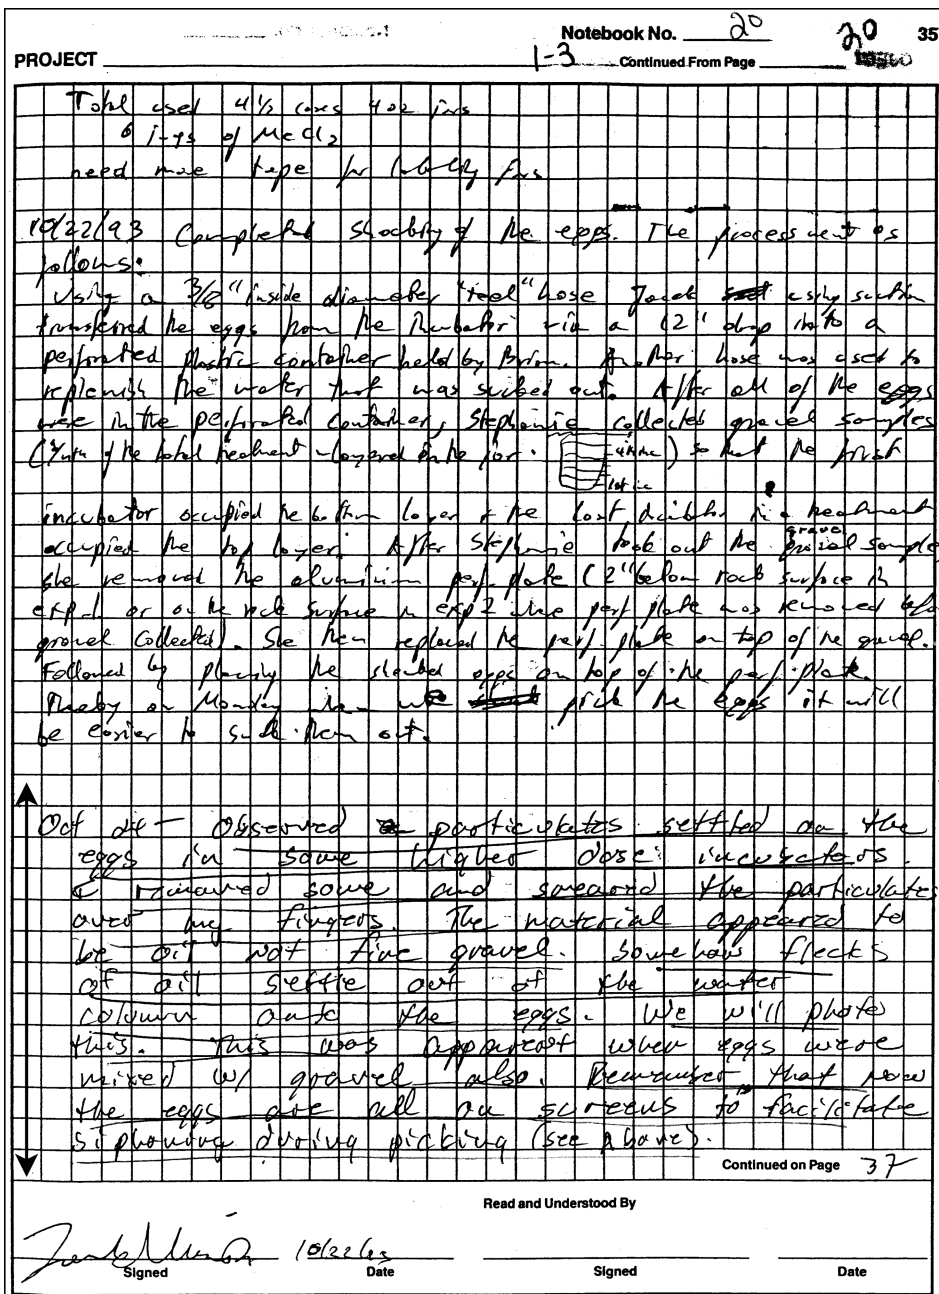 Notebook No. 20 20 35
PROJECT 1-3 Continued From Page
Total used 4 1/2 cases 4 oz jars
6 jugs of MeCl2
need more tape for labeling jars
10/22/93 Completed shocking of the eggs. The process went as
follows:
Using a 3/8" inside diameter hose Jacek using suction
transferred the eggs from the incubator via a 12" drop into a
perforated plastic container held by Brian. Another hose was used to
replenish the water that was sucked out. After all of the eggs
were in the perforated container, Stephanie collected gravel samples
of the total treatment layered in the jar. ) so that the first
1st inc
incubator occupied the bottom layer & the last incubator in a treatment
occupied the top layer. After Stephanie took out the gravel sample
she removed the aluminum perf. plate (2" below rock surface in
exp 1 or on the rock surface in exp 2 where perf plate was removed before
gravel collected). She then replaced the perf. plate on top of the gravel.
Followed by placing the shocked eggs on top of the perf. plate.
Thereby on Monday when we pick the eggs it will
be easier to suck them out.
Oct 24 - Observed particulates settled on the
eggs in some higher dose incubators.
I removed some and smeared the particulates
over my fingers. The material appeared to
be oil not fine gravel. Somehow flecks
of oil settle out of the water
column onto the eggs. We will photo
this. This was apparent when eggs were
mixed w/ gravel also. Remember that now
the eggs are all on screens to facilitate
siphoning during picking (see above).
Continued on Page 37
Read and Understood By
10/22/93
Signed Date Signed Date